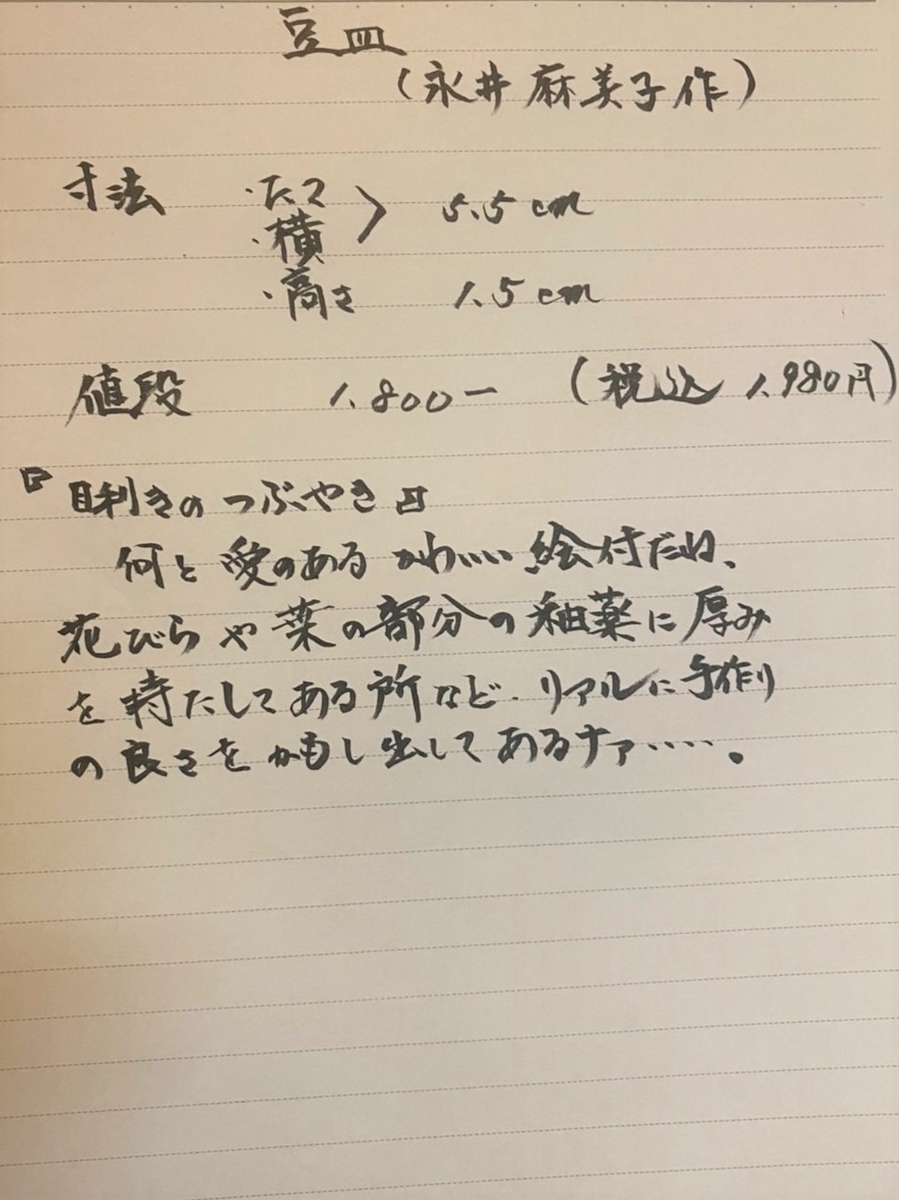 豆皿
(永井麻美子作)
寸法 ・たて
・横 > 5.5cm
・高さ 1.5cm
値段 1.800ー (税込 1.980円)
『目利きのつぶやき』
何と愛のあるかわいい絵付だね、
花びらや葉の部分の釉薬に厚み
を持たしてある所など、リアルに手作り
の良さをかもし出してあるナァ‥‥。